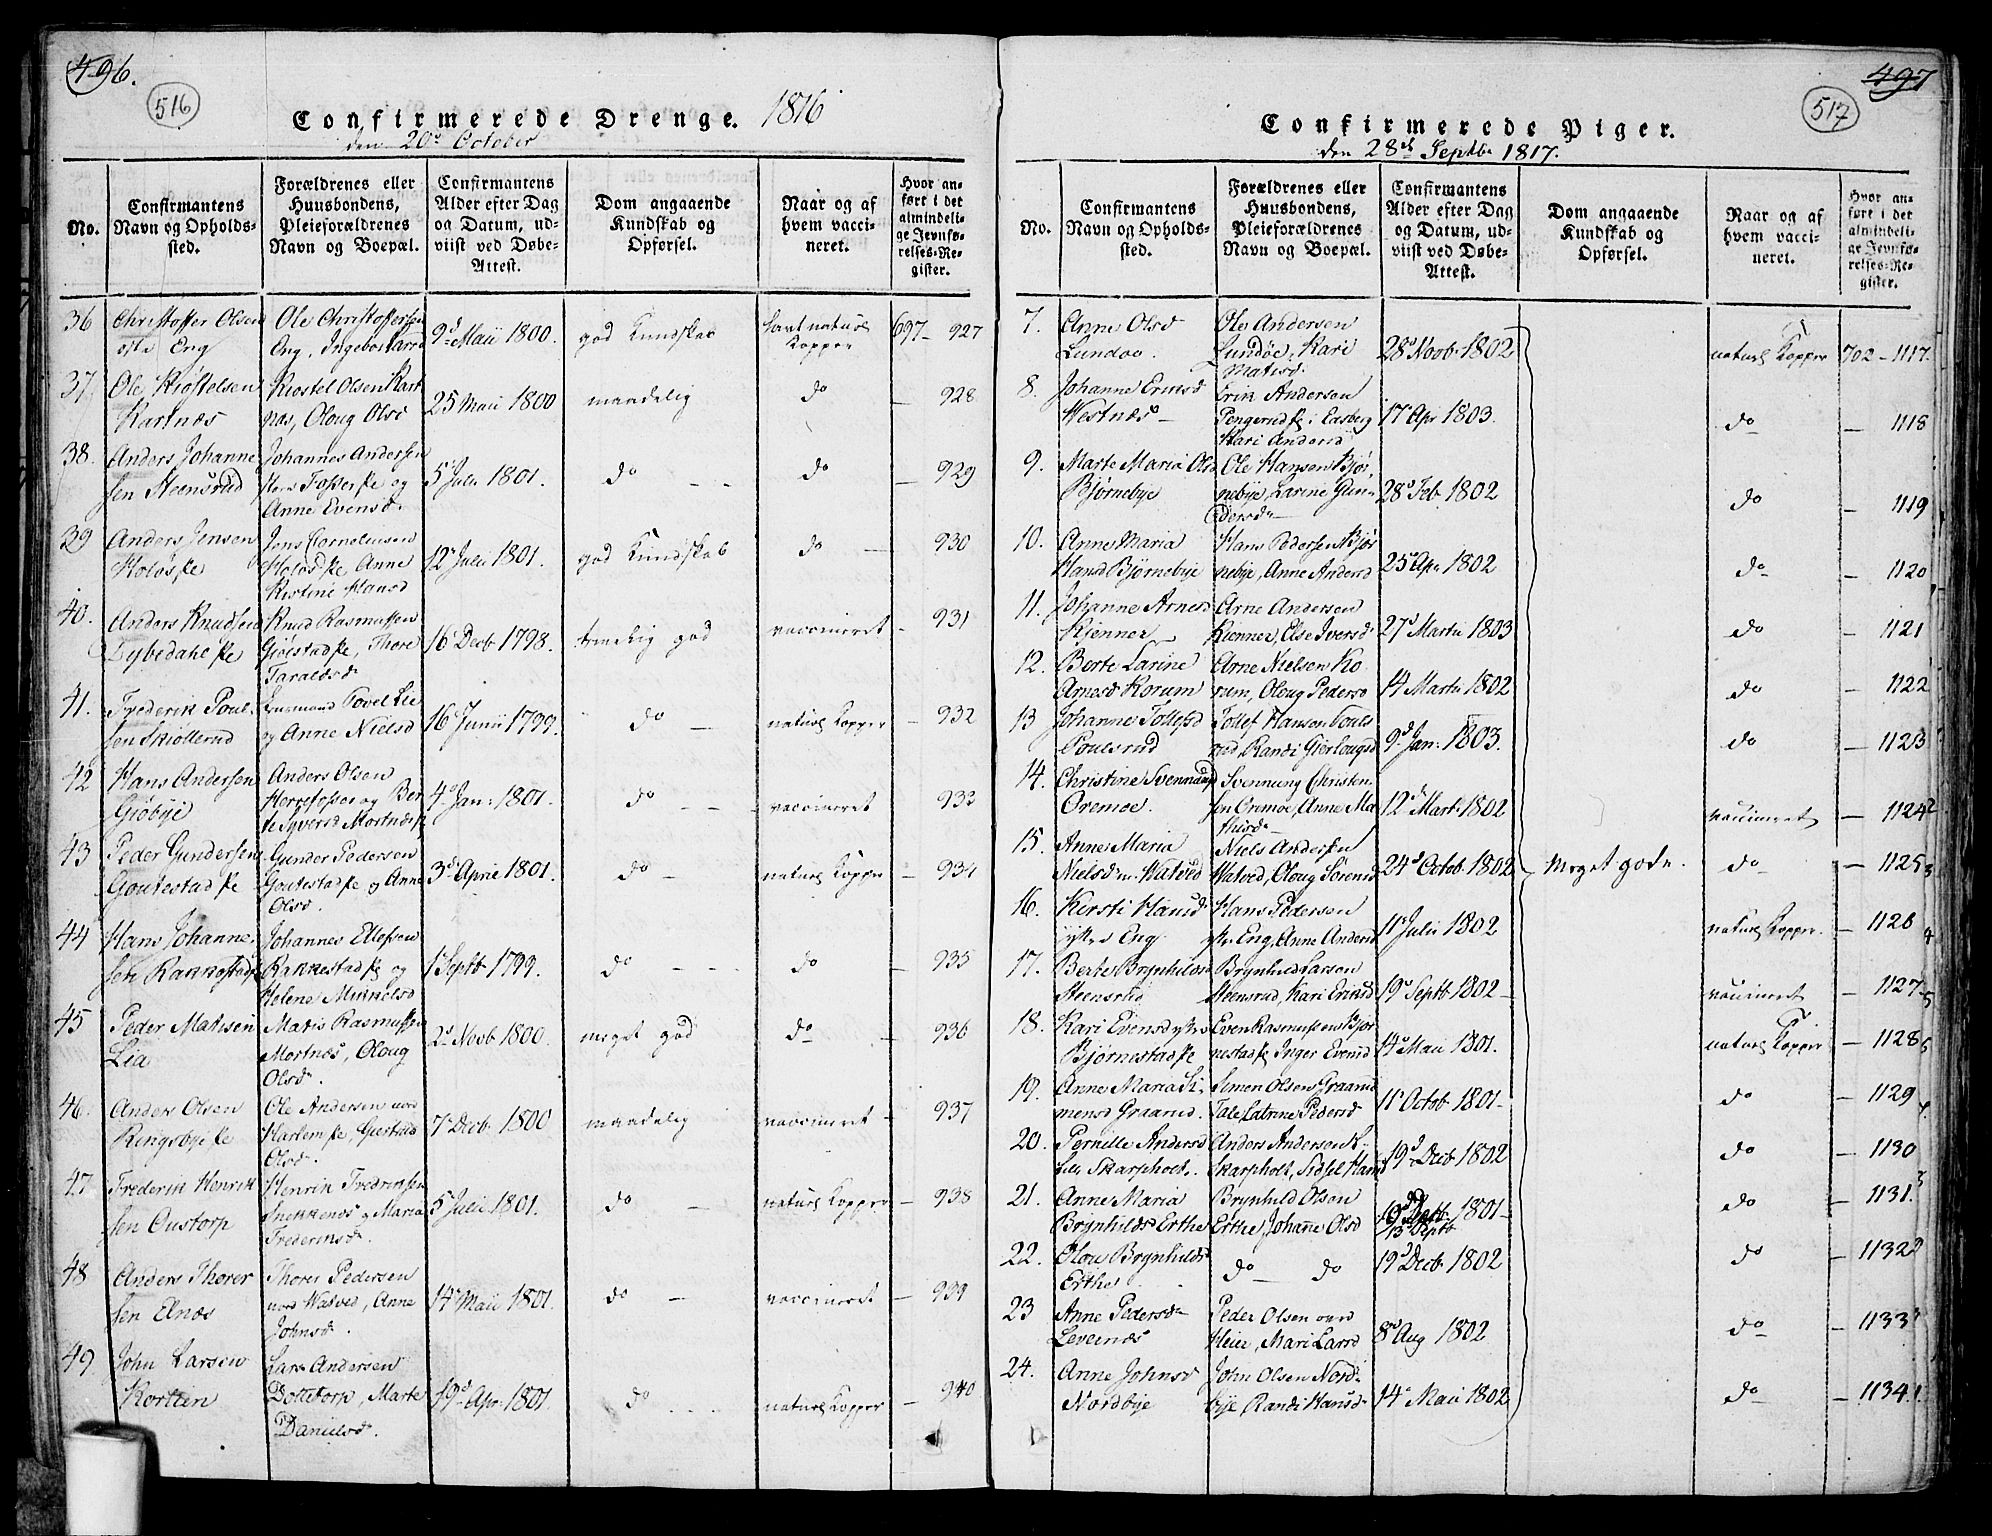 496.
516
Confirmerede Drenge. 1816
den 20de October
No.
Confirmantens
Navn og Opholds-
sted.
Forældrenes eller
Huusbondens,
Pleieforældrenes
Navn og Boepæl.
Confirmantens
Alder efter Dag
og Datum, ud-
viist ved Døbe-
Attest.
Dom angaaende
Kundskab og
Opførsel.
Naar og af
hvem vacci-
neret.
Hvor an-
ført i det
almindeli-
ge Jevnfø-
relses-Re-
gister.
36 Christoffer Olsen
Eng
Ole Christophersen
Eng,
9d Maii 1800.
god Kundskab
naturl
Kopper
697 - 927
37 Ole Kiøstelsen
Kartnæs
Kiostel Olsen Kart
næs, Oloug Olsd
25 Maii 1800
maadelig
do
— 928
38. Anders Johanne
sen Steensrud
Johannes Andersen
Fosser og
Anne Evensd.
5 Juli 1801.
do
do
— 929
39 Anders Jensen
Holøs
Jens Corneliusen
Holøs Anne
Kistine Hansd
12 Juli 1801.
god Kundskab
do —
930
40. Anders Knudsen
Dybedahl
Knud Rasmussen
Giøistad, Thore
Taraldsd
16 Decb 1798.
temelig god
vaccineret
- 931
41. Frederik Poul-
sen Skiollerud
Povel Lie
og Anne Nielsd
16 Junii 1799.
do —
naturl Kopper
- 932
42 Hans Andersen
Giøbye
Anders Olsen
Herrefosser og Ber
te Syversd Mortnæs
4d Jan: 1801.
do
vaccineret
933
43 Peder Gundersen
Goutestad
Gunder Pedersen
Goutestad og Anne
Olsd.
3d April 1801.
do —
naturl Kopper
- 934
44 Hans Johanne-
sen Rakkestad
Johannes Ellefsen
Rakkestad og
Helene Mikkelsd
1 Septb 1799.
do
do
— 935
45 Peder Matisen
Lia
Matis Rasmussen
Mortnæs, Oloug
Olsd.
2d Novb 1800.
meget god
do
936
46. Anders Olsen
Ringsbye
Ole Andersen
Harlem, Giertrud
Olsd.
7 Decb 1800
maadelig
vaccineret
937
47 Frederik Henrik
sen Oustorp
Henrik Fredriksen
Snekkenes og Maria
Frederiksd.
5 Julii 1801.
do —
naturl Kopper
— 938
48 Anders Thorer
sen Elnæs
Thorer Pedersen
Watved, Anne
Johnsd.
14 Maii 1801.
do —
vaccineret
— 939
49 John Larsen
Kortien
Lars Andersen
Dottetorp, Marte
Danielsd.
19d Apr. 1801.
do
naturl Kopper
— 940
497
517
Confirmerede Piger.
den 28de Septbr 1817.
No.
Confirmantens
Navn og Opholds-
sted.
Forældrenes eller
Huusbondens,
Pleieforældrenes
Navn og Boepæl.
Confirmantens
Alder efter Dag
og Datum, ud-
viist ved Døbe-
Attest.
Dom angaaende
Kundskab og
Opførsel.
Naar og af
hvem vacci-
neret.
Hvor an-
ført i det
almindeli-
ge Jevnfø-
relses-Re-
gister.
7. Anne Olsd
Lundøe.
Ole Andersen
Lundøe, Kari
Matisd.
28d Novb. 1802
naturl Kopper
702 - 1117.
8. Johanne Eriksd
Westnæs —
Erik Andersen
Pengerud
Kari Andersd
17 Apr 1803.
do
— 1118
9. Marte Maria Olsd
Bjørnebye
Ole Hansen Bjør-
nebye, Larine Gun-
dersd
28d Feb 1802
do
— 1119
10. Anne Maria
Hansd Bjørnebye
Hans Pedersen Bjør
nebye, Anne Andersd
25 Apr 1802
do
— 1120
11. Johanne Arnesd
Kjenner
Arne Andersen
Kienner, Else Iversd
27 Martii 1803
do
— 1121
12. Berte Larine
Arnesd Korum
Arne Nielsen Ko
rum, Oloug Pedersd
14 Martii 1802
do
— 1122
13 Johanne Tollefsd
Poulsrud
Tollef Hansen Pouls
rud, Randi Gierlougsd
9d Jan: 1803.
do
— 1123
14. Christine Svennungsd
Oremoe.
Svennung Christen
sen Oremoe, Anne Ma
thisd
12d Mart. 1802
vaccineret
— 1124
15. Anne Maria
Nielsd Watved
Niels Andersen
Watved, Oloug Sørensd
24d Octob. 1802
Meget gode.
do
— 1125
16. Kersti Hansd
ytre Eng
Hans Pedersen
ytre Eng, Anne Andersd
11 Julii 1802
naturl Kopper.
— 1126
17. Berte Brynhildsd
Steensrud
Brynhild Larsen
Steensrud, Kari Eriksd
19d Septb 1802
vaccineret
— 1127
18. Kari Evensd
Bjørnestad
Even Rasmussen Bjør
nestad Inger Evensd
14d Maii 1801.
naturl Kopper
— 1128
19. Anne Maria Si-
mensd Graarud.
Simen Olsen Graarud
Catrine Pedersd
11 Octob 1801
do
— 1129
20. Pernille Andersd
Skarpholt.
Anders Andersen
Skarpholt, Sidsel Hansd
19d Decb 1802
do
— 1130
21. Anne Maria
Brynhildsd Erthe
Brynhild Olsen
Erthe, Johanne Olsd
13 Septb 1801
do
— 1131
22. Olou Brynhildsd
Erthe
do — do
19d Decb. 1802
do
— 1132
23 Anne Pedersd
Levernæs
Peder Olsen
Heier, Mari Larsd
8d Aug 1802
do
— 1133
24. Anne Johnsd
Nordbye
John Olsen Nord-
bye, Randi Hansd
14 Maii 1802
do
— 1134